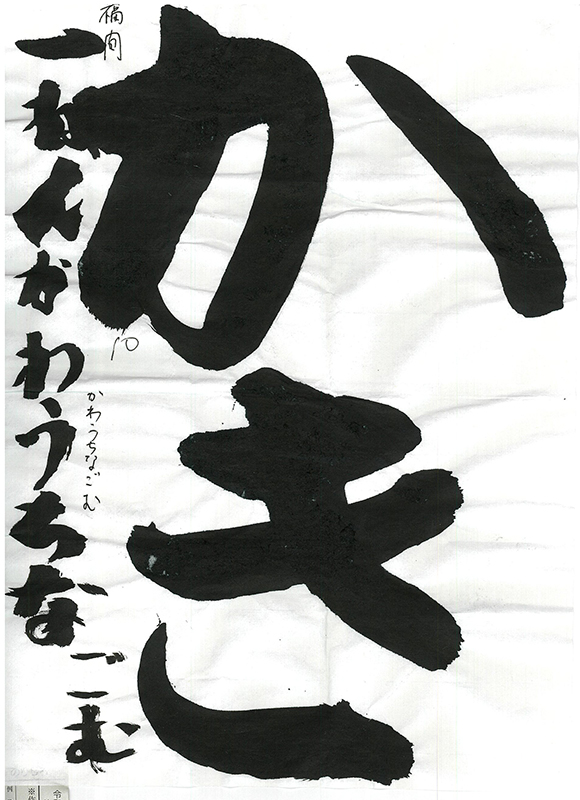 かき
一ねんかわうちなごむ
かわうちなごむ
福間
10